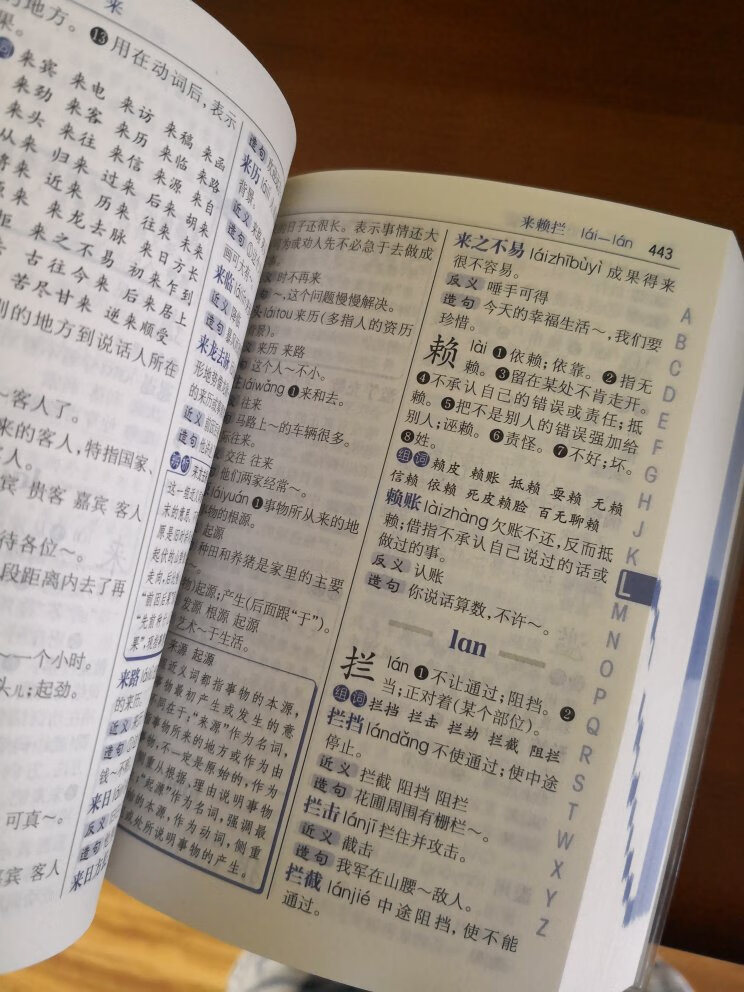 来
的地方。⓭用在动词后，表示
果。
来宾 来电 来访 来稿 来函
来劲 来客 来历 来临 来路
来头 来往 来信 来源 来自
从来 归来 过来 后来 胡来
将来 近来 历来 往来 未来
原来 来龙去脉 来日方长
来之不易 初来乍到
古往今来 后来居上
苦尽甘来 逆来顺受
别的地方到说话人所在
～客人了。
来的客人，特指国家、
客人。
宾 贵客 嘉宾 客人
待各位～。
段距离内去了再
～一个小时。
头儿；起劲。
可真～。
嘉宾 客人
造句
来历
背景。
近义
造句
来临
近义
造句
来龙去脉
形地势
的来历
近义
造句
来路
的来历
近义
造句
钱～不
来日
反义
造句
来日方长
来赖拦 lái—lán 443
的日子还很长。表示事情还大
为或劝人先不必急于去做成
时不再来
～，这个问题慢慢解决。
头láitou来历(多指人的资历
背景)。
来历 来路
这个人～不小。
láiwǎng ❶来和去。
往来
马路上～的车辆很多。
际往来。
交往 往来
他们两家经常～。
láiyuán ❶事物所从来的地
事物的根源。
起源
种田和养猪是家里的主要
物)起源；产生(后面跟“于”)。
发源 根源 起源
艺术～于生活。
来源 起源
近义词都指事物的本源，
事物最初产生或发生的意
不同在于：“来源”作为名词，
指事物所来的地方或作为由
物，不一定是原始的，作为
侧重从根据、理由说明事物
“起源”作为名词，强调最
的本源，作为动词，侧重
或处所说明事物的产生。
来之不易 láizhībùyì 成果得来
很不容易。
反义 唾手可得
造句 今天的幸福生活～，我们要
珍惜。
赖 lài ❶依赖；依靠。❷指无
赖。❸留在某处不肯走开。
❹不承认自己的错误或责任；抵
赖。❺把不是别人的错误强加给
别人；诬赖。❻责怪。❼不好；坏。
❽姓。
组词 赖皮 赖账 抵赖 耍赖 无赖
信赖 依赖 死皮赖脸 百无聊赖
赖账 làizhàng 欠账不还，反而抵
赖；借指不承认自己说过的话或
做过的事。
反义 认账
造句 你说话算数，不许～。
lan
拦 lán ❶不让通过；阻挡。❷
当；正对着(某个部位)。
组词 拦挡 拦击 拦劫 拦截 阻拦
拦挡 lándǎng 不使通过；使中途
停止。
近义 拦截 阻挡 阻拦
造句 花圃周围有栅栏～。
拦击 lánjī 拦住并攻击。
近义 截击
造句 我军在山腰～敌人。
拦截 lánjié 中途阻挡，使不能
通过。
A
B
C
D
E
F
G
H
J
K
L
M
N
O
P
Q
R
S
T
W
X
Y
Z